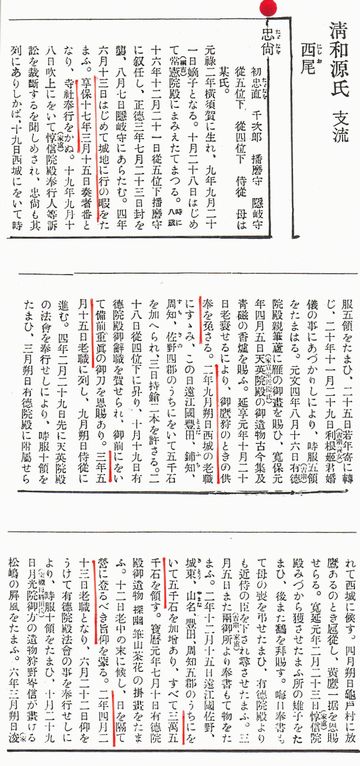 清和源氏 支流
西尾
忠尚
初忠直 千次郎 播磨守 隠岐守
従五位下 従四位下 侍従 母は
某氏。
元禄二年横須賀に生れ、九年九月十
一日嫡子となる。十月二十八日はじめ
て常憲院殿にまみえたてまつる。八歳 時に
十六年十二月二十一日従五位下播磨守
に叙任し、正徳三年七月二十三日封を
襲、八月七日隠岐守にあらたむ。四年
六月十三日はじめて城地に行の暇をた
まふ。享保十七年三月十五日奏者番と
なり、寺社奉行をかぬ。十九年九月十
八日吹上にをいて惇信院殿奉行人等訴
訟を裁断するを聞しめされ、忠尚も其
列にありしかば、十九日西城にをいて時
服五領をたまひ、二十五日若年寄に轉
じ、二十年十一月二十九日利根姫君婚
儀の事にあづかりしにより、時服五領
をたまはる。元文四年八月十六日有徳
院殿親筆蘆に雁の御畫を賜ひ、寛保元
年四月五日天英院殿の御遺物古今集及
青磁の香爐を賜ふ。延享元年十二月十
日老衰せるにより、御鷹狩のときの供
奉を免さる。二年九月朔日西城の老職
にすゝみ、この日遠江國豊田、鋪知、
周知、佐野四郡のうちにをいて五千石
を加へられ、三日持鎗二本を許さる。二
十八日従四位下に昇り、十月十九日有
徳院殿御辭職を賀せられ、御前にをい
て備前重眞の御刀を恩賜あり。三年五
月十五日老職に列し、九月朔日侍従に
進む。四年二月二十九日先に天英院殿
の法會を奉行せしにより、時服十領を
たまひ、三月朔日有徳院殿に附屬せら
れて西城に候す。四月朔日龜戸村に放
鷹あるのとき感應し、黄鷹一据を恩賜
せらる。寛延元年二月二十三日惇信院
殿みづから獲させたまふ所の雉子をた
まひ、後また鶴を拜賜す。毎日奉書も
て母の喪を弔せたまひ、有徳院殿より
も近侍の臣を下され尋させたまふ。三
月五日また兩御所より奉書もて物をた
まふ。二年十二月十五日遠江國佐野、
城東、山名、豊田、周知五郡のうちにを
いて五千石を加増あり、すべて三萬五
千石を領す。寶暦元年七月十日有徳院
殿御遺物 探幽 筆山茶花の掛畫をたま
ふ。十二日老中の末に候し、日を隔て
營に登るべき旨仰を蒙る。二年四月二
十三日老職となり、六月二十二日仰を
うけて有徳院殿法會の事を奉行せしに
より、時服十領をたまひ、十月二十九
日月光院御方の遺物狩野榮信が畫ける
松嶋の屏風をたまふ。六年三月朔日浚